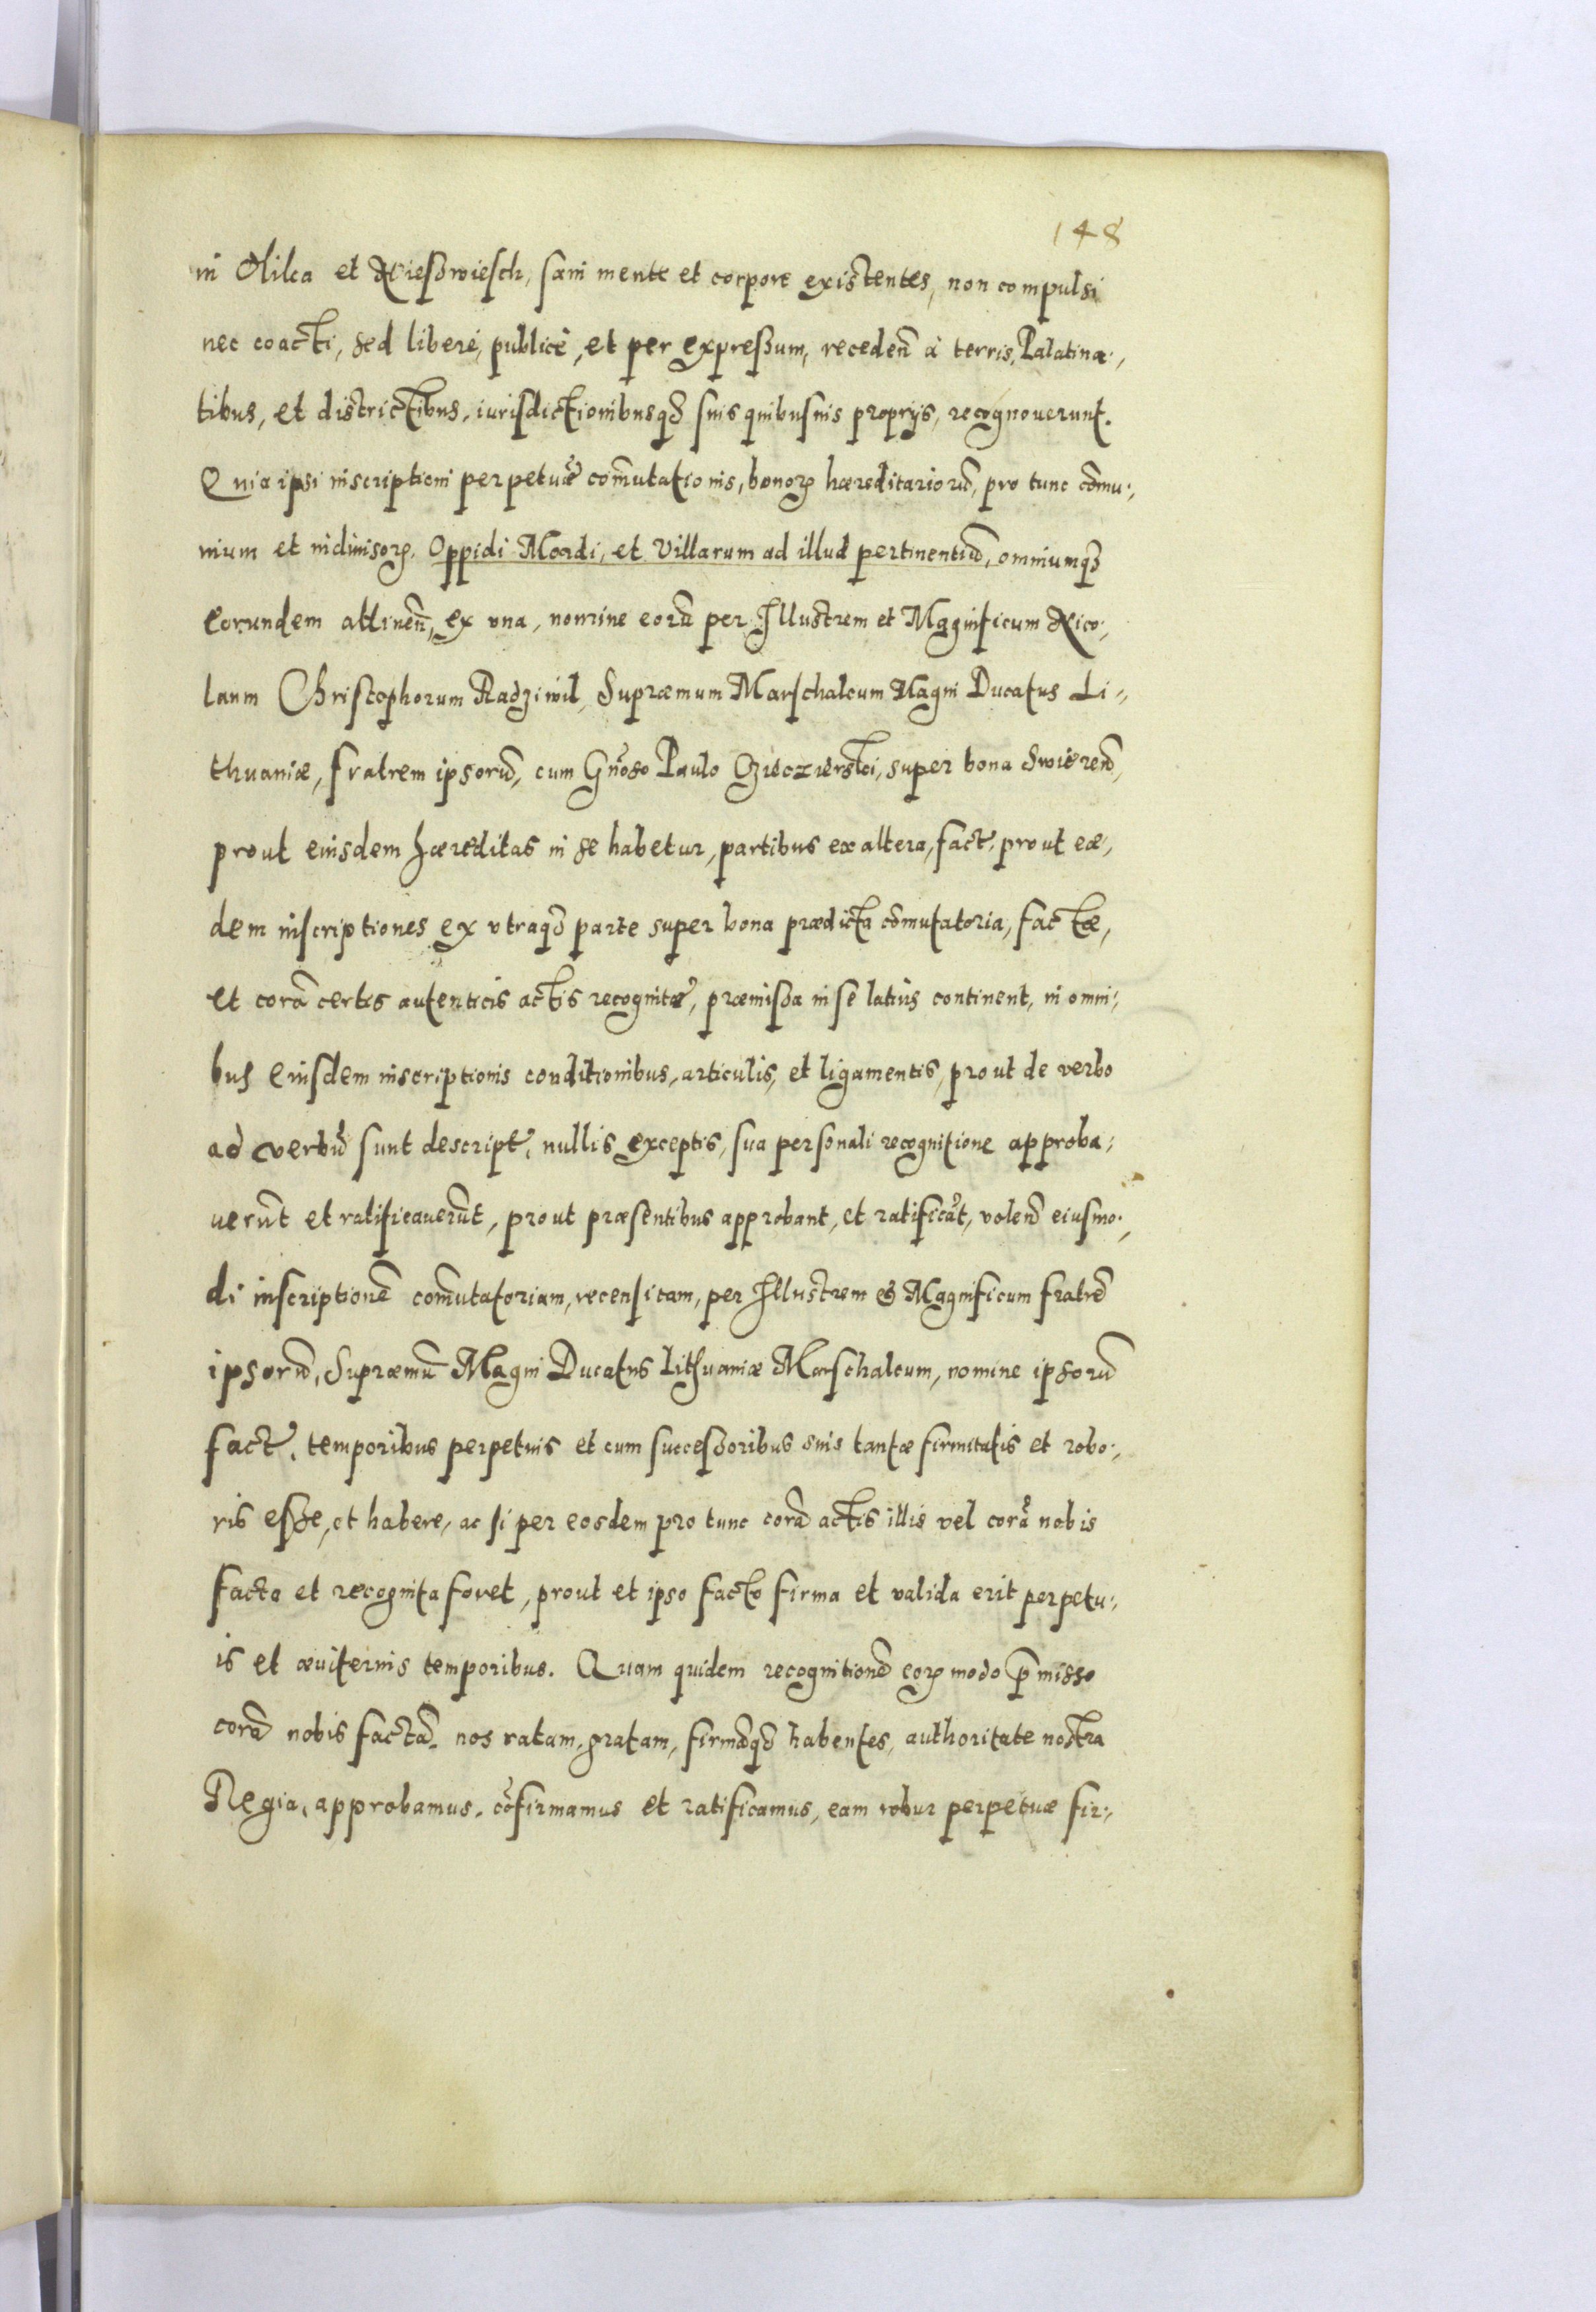 148
in Olika et Nießwiesch, sani mente et corpore existentes, non compulsi
nec coacti, sed liberè, publicè, et per expreßum, recedeñ à terris, Palatina,
tibus, et districtibus, iurisdictionibusq₃ suis quibusuis proprijs, recognouerunt.
Quia ipsi inscriptioni perpetuæ com̃utationis, bonoꝝ hæreditariorũ, pro tunc cõmu,
nium et indiuisoꝝ, Oppidi Mordi, et Villarum ad illud pertinentiũ, omniumq₃
eorundem attineñ, ex vna, nomine eorũ per Illustrem et Magnificum Nico,
laum Christophorum Radziwil, Supræmum Marschalcum Magni Ducatus Li,
thuaniæ, fratrem ipsorũ, cum Gñoso Paulo Czieczierski, super bona Swierenẽ,
prout eiusdem hæreditas in se habetur, partibus ex altera, fact, prout eæ,
dem inscriptiones ex vtraq₃ parte super bona prædicta cõmutatoria, factæ,
et corã certis autenticis actis recognitæ, præmißa in se latiùs continent, in omni,
bus eiusdem inscriptionis conditionibus, articulis, et ligamentis, prout de verbo
ad verbũ sunt descript, nullis exceptis, sua personali recognitione approba,
uerũt et ratificauerũt, prout præsentibus approbant, et ratificãt, volenẽ eiusmo,
di inscriptionẽ com̃utatoriam, recensitam, per Illustrem & Magnificum fratrẽ
ipsorũ, Supræmũ Magni Ducatus Lithuaniæ Marschalcum, nomine ipsorũ
fact, temporibus perpetuis et cum succeßoribus suis tantæ firmitatis et robo,
ris eße, et habere, ac si per eosdem pro tunc corã actis illis vel corã nobis
facta et recognita foret, prout et ipso facto firma et valida erit perpetu,
is et æuiternis temporibus. Quam quidem recognitionẽ eoꝝ modo p̃misso
corã nobis factã, nos ratam, gratam, firmãq₃ habentes, authoritate nostra
Regia, approbamus, cõfirmamus et ratificamus, eam robur perpetuæ fir,